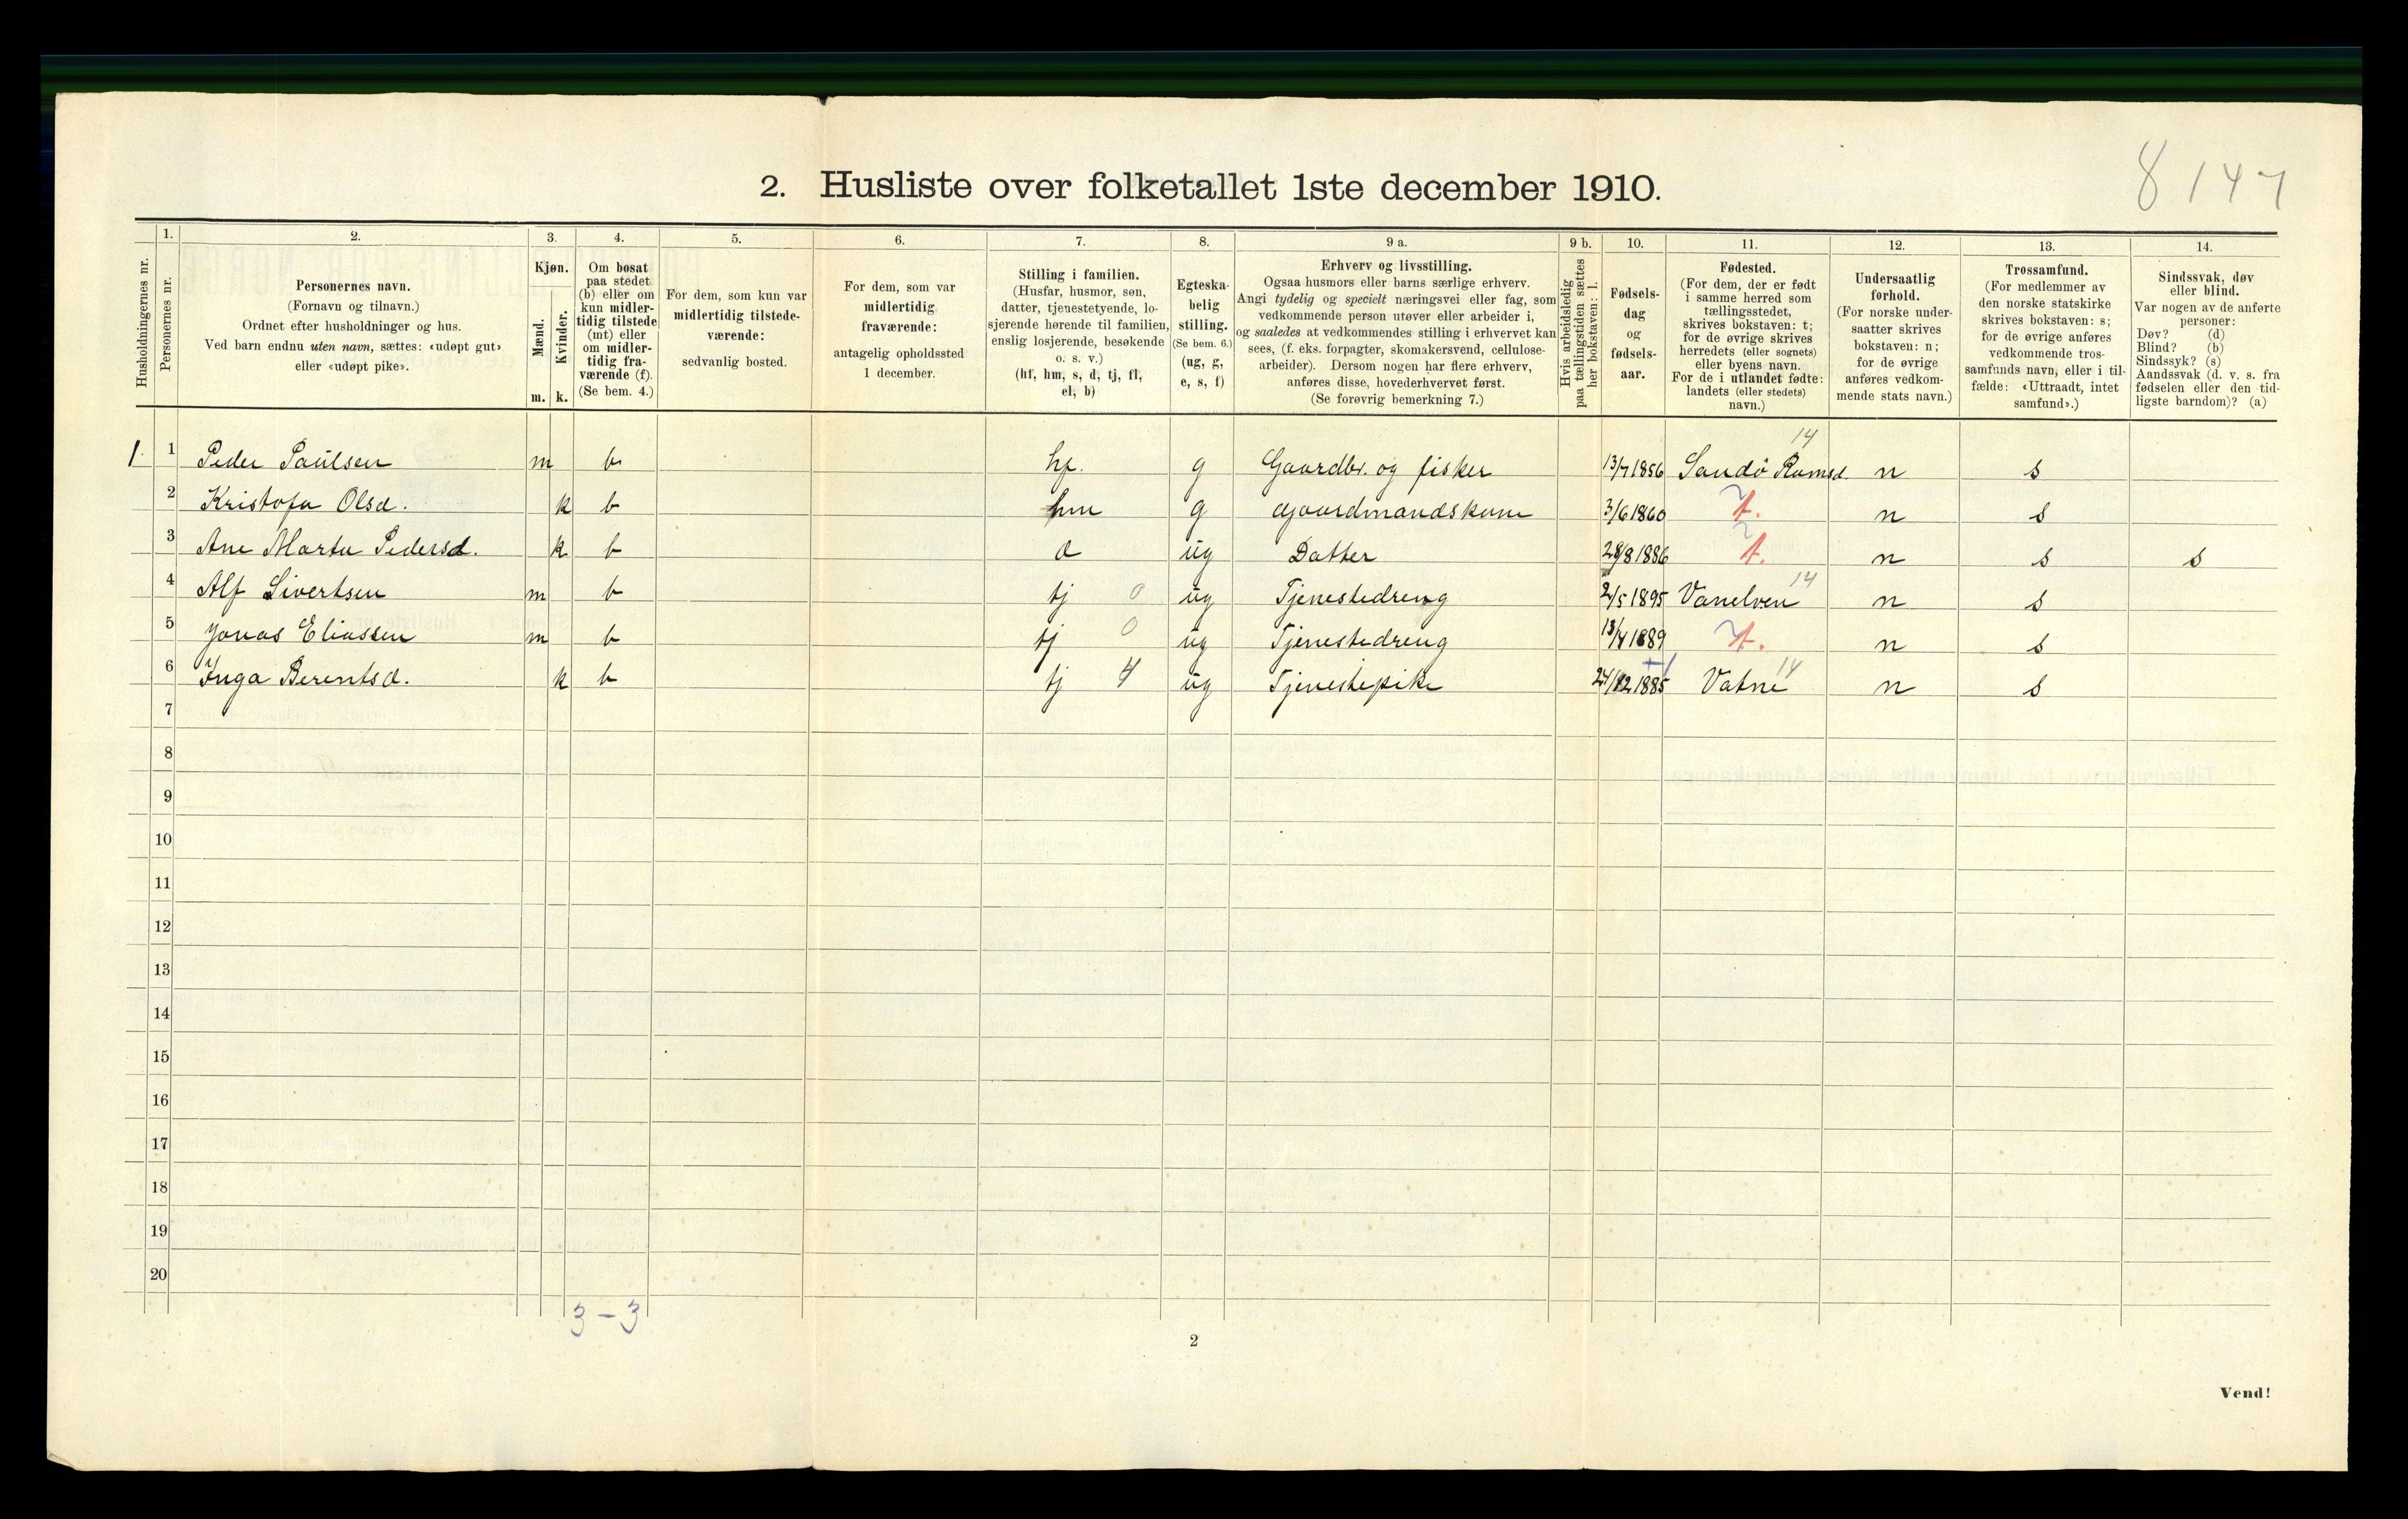 8 147
2. Husliste over folketallet 1ste december 1910.
Husholdningernes nr.
1. Personernes nr.
2. Personernes navn.
(Fornavn og tilnavn.)
Ordnet efter husholdninger og hus.
Ved barn endnu uten navn, sættes: «udøpt gut»
eller «udøpt pike».
3. Kjøn.
Mænd. Kvinder.
m. k.
4. Om bosat
paa stedet
(b) eller om
kun midler-
tidig tilstede
(mt) eller
om midler-
tidig fra-
værende (f).
(Se bem. 4.)
5. For dem, som kun var
midlertidig tilstede-
værende:
sedvanlig bosted.
6. For dem, som var
midlertidig
fraværende:
antagelig opholdssted
1 december.
7. Stilling i familien.
(Husfar, husmor, søn,
datter, tjenestetyende, lo-
sjerende hørende til familien,
enslig losjerende, besøkende
o. s. v.)
(hf, hm, s, d, tj, fl,
el, b)
8. Egteska-
belig
stilling.
(Se bem. 6.)
(ug, g,
e, s, f)
9 a. Erhverv og livsstilling.
Ogsaa husmors eller barns særlige erhverv.
Angi tydelig og specielt næringsvei eller fag, som
vedkommende person utøver eller arbeider i,
og saaledes at vedkommendes stilling i erhvervet kan
sees, (f. eks. forpagter, skomakersvend, cellulose-
arbeider). Dersom nogen har flere erhverv,
anføres disse, hovederhvervet først.
(Se forøvrig bemerkning 7.)
9 b. Hvis arbeidsledig
paa tællingstiden sættes
her bokstaven: l.
10. Fødsels-
dag
og
fødsels-
aar.
11. Fødested.
(For dem, der er født
i samme herred som
tællingsstedet,
skrives bokstaven: t;
for de øvrige skrives
herredets (eller sognets)
eller byens navn.
For de i utlandet fødte:
landets (eller stedets)
navn.)
12. Undersaatlig
forhold.
(For norske under-
saatter skrives
bokstaven: n;
for de øvrige
anføres vedkom-
mende stats navn.)
13. Trossamfund.
(For medlemmer av
den norske statskirke
skrives bokstaven: s;
for de øvrige anføres
vedkommende tros-
samfunds navn, eller i til-
fælde: «Uttraadt, intet
samfund».)
14. Sindssvak, døv
eller blind.
Var nogen av de anførte
personer:
Døv? (d)
Blind? (b)
Sindssyk? (s)
Aandssvak (d. v. s. fra
fødselen eller den tid-
ligste barndom)? (a)
14
1. 1 Peder Paulsen m b hf. g Gaardbr. og fisker 13/7 1856 Sandö Ramsd. n s
2 Kristofa Olsd. k b hm g Gaardmandskone 3/6 1860 t. n s
3 Ane Marta Pedersd. k b d ug Datter 28/8 1886 t. n s s
4 Alf Sivertsen m b tj 0 ug Tjenestedreng 2/5 1895 Vanelven 14 n s
5 Jonas Eliassen m b tj 0 ug Tjenestedreng 13/4 1889 t. n s
6 Inga Berentsd. k b tj 4 ug Tjenestepike 24/12 1885 Vatne 14 n s
7
8
9
10
11
12
13
14
15
16
17
18
19
20
3 - 3
2
Vend!